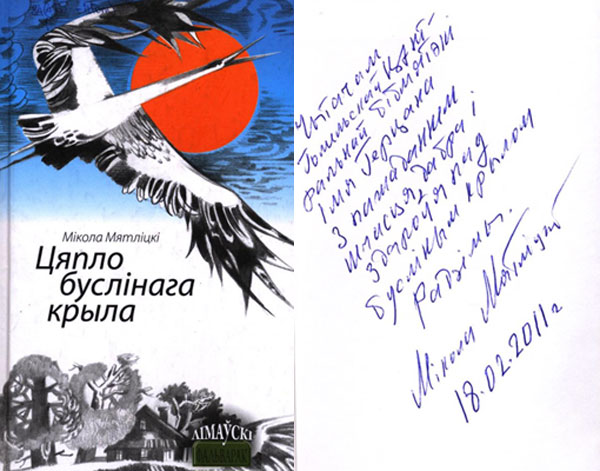 Мікола Мятліцкі
Цяпло
буслінага
крыла
ЛІМАЎСКІ
ФАЛЬВАРАК
Чытачам
Гомельскай цэнт-
ральнай бібліятэкі
імя Герцэна
з пажаданнем
шчасця, дабра і
здароўя пад
буслiным крылом
Радзімы.
Мікола Мятліцкі
18.02.2011 г